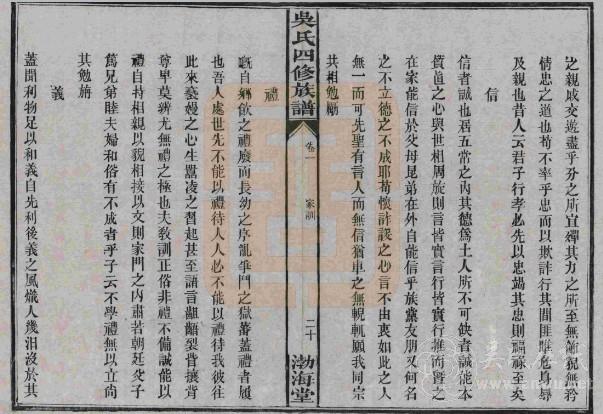 之親戚交遊盡乎分之所宜殫其力之所至無猊無矜
情忠之道也苟不率乎忠而以欺詐行其間匪惟危以辱
及親也昔人云君子行孝必先以忠竭其忠則福祿至矣
信
信者誠也居五常之內其德為土人所不可缺者誠能本
質直之心與世相周旋則言皆實言行皆實行推而暨之
在家能信於父母昆弟在外自能信乎族黨友朋又何名
之不立德之不成耶苟懷詐諼之心言不由衷如此之人
無一而可先聖有言人而無信猶車之無輗軏願我同宗
共相勉勵
吳氏四修族譜
卷一
家訓
二十
渤海堂
禮
慨自鄉飲之禮廢而長幼之序亂爭鬥之獄蕃蓋禮者履
也吾人處世先不能以禮待人人必不能以禮待我彼往
此來褻嫚之心生囂凌之習起甚至詬言齟齬裂眥攘臂
尊卑莫辨尤無禮之極也夫教訓正俗非禮不備誠能以
禮自持相親以貌相接以文則家門之內肅若朝廷父子
篤兄弟睦夫婦和俗有不成者乎子云不學禮無以立尚
其勉旃
義
蓋聞利物足以和義自先利後義之風熾人幾汩沒於其